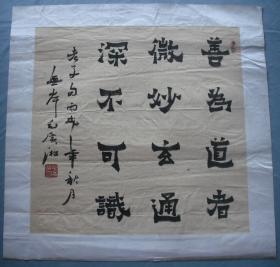 善為道者
微妙玄通
深不可識
老子句丙戌年秋月